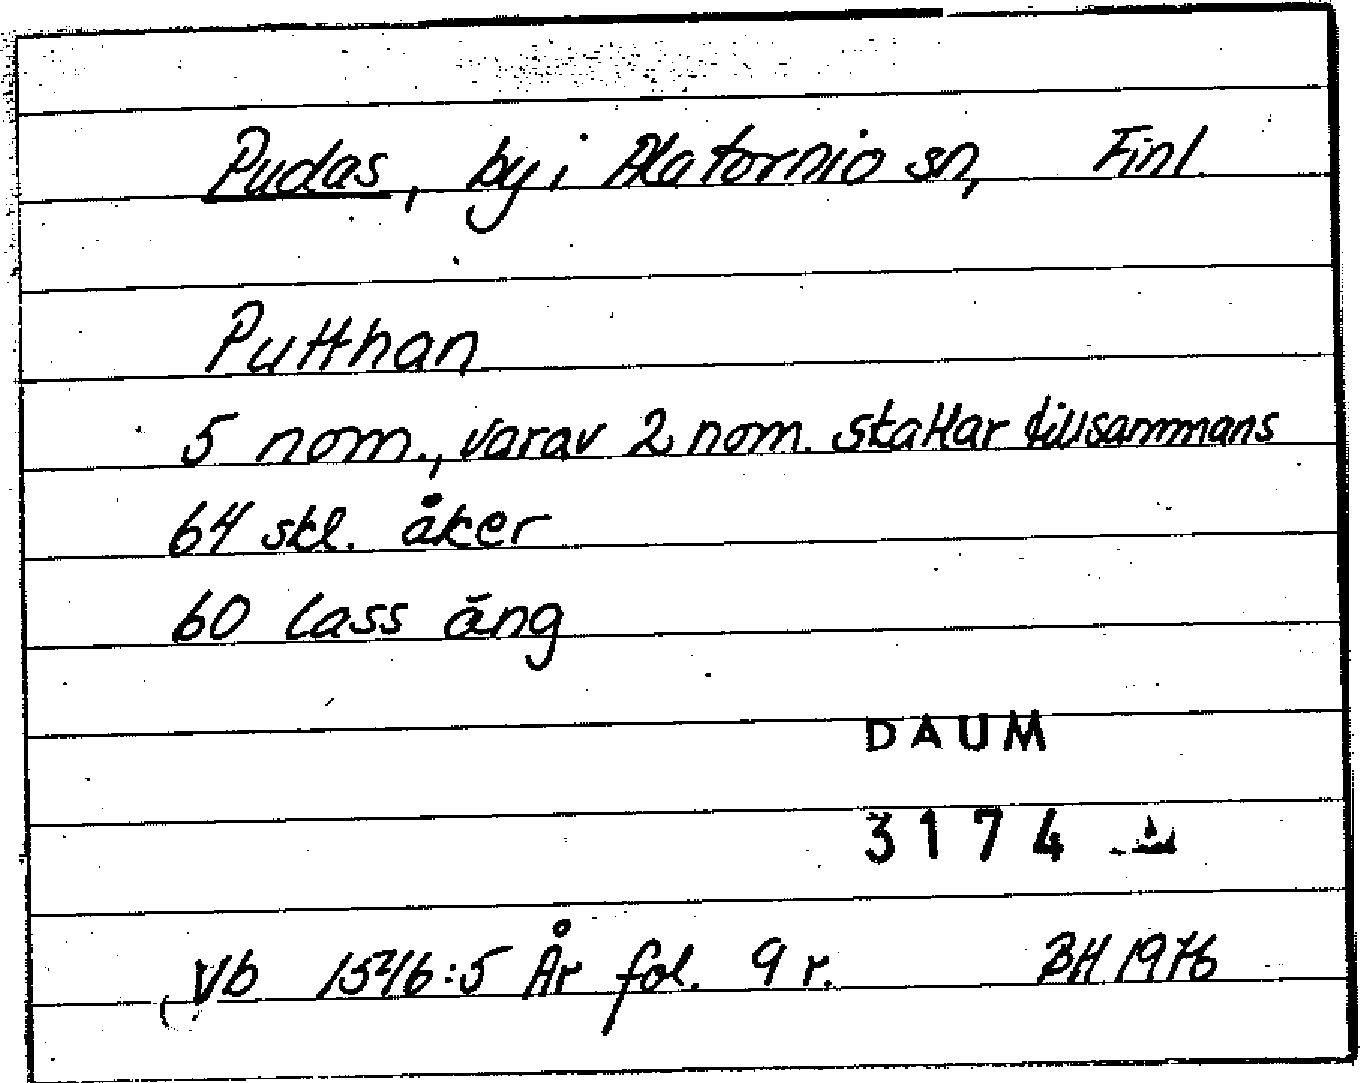 Pudas, by i Alatornio sn, Finl.
Putthan
5 nom., varav 2 nom. skattar tillsammans
64 skl. åker
60 lass äng
DAUM
3174
Vb 1546:5 År fol. 9 r. BH 1976